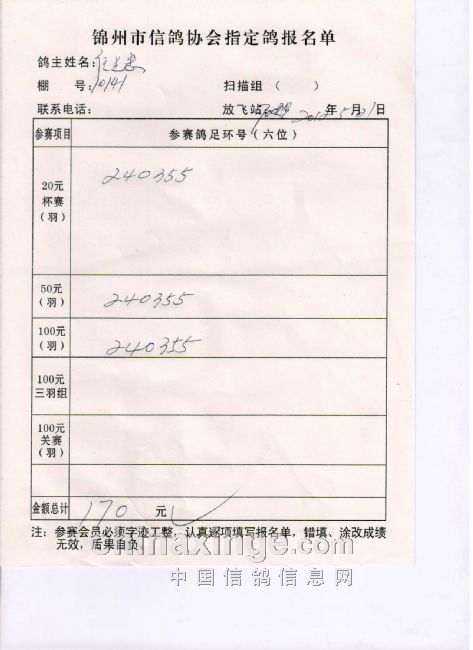 锦州市信鸽协会指定鸽报名单
鸽主姓名:
棚 号: 10141 扫描组 ( )
联系电话: 放飞站 2012 年 5 月 日
参赛项目 参赛鸽足环号(六位)
20元
杯赛
(羽)
240355
50元
(羽)
240355
100元
(羽)
240355
100元
三羽组
100元
关赛
(羽)
金额总计 170 元
注: 参赛会员必须字迹工整, 认真逐项填写报名单, 错填、涂改成绩
无效, 后果自负
chinaxinge.com
中国信鸽信息网